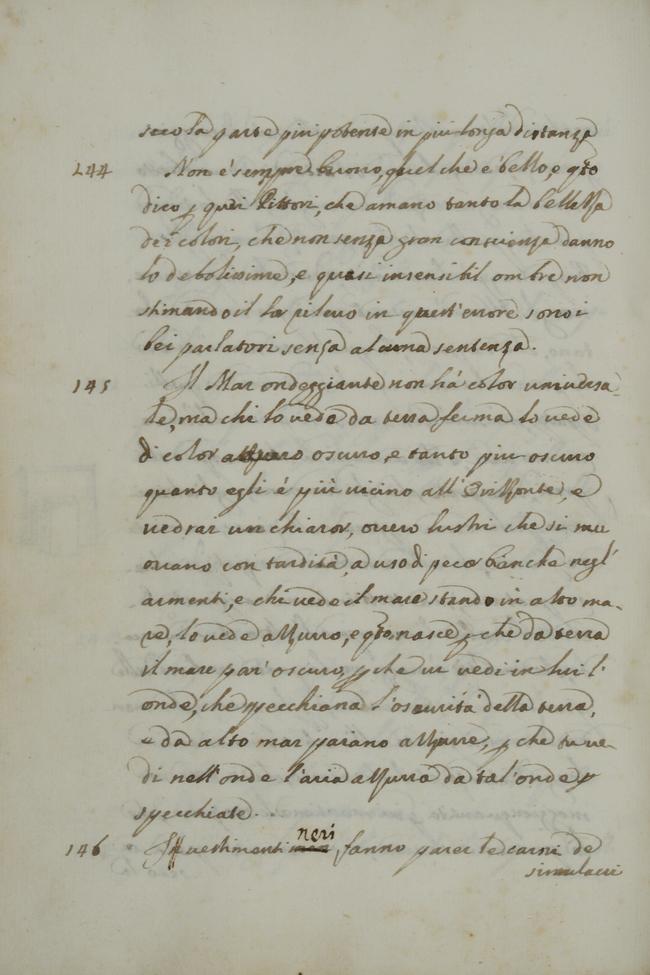 seco la parte piu potente in piu longa distanza
144 Non é sempre buono, quel che é bello, e qto
dico p quei Pittori, che amano tanto la bellezza
dei colori, che non senza gran conscienza danno
lo debolissime, e quasi insensibil ombre non
stimando il lor rilevo in quest'errore sono i
bei parlatori senza alcuna sentenza.
145 Il Mar ondeggiante non há color universa-
le, ma chi lo vede da terra ferma lo vede
di color oscuro, e tanto piu oscuro
quanto egli é piú vicino all'Orizonte, e
vedrai un chiaror, overo lustri che si mu
ovano con tardità, a uso di pecore bianche negl'
armenti, e chi vede il mare stando in alto ma-
re, lo vede azzurro, e qto nasce, p che da terra
il mare par' oscuro, p che vi vedi in lui l'
onde, che specchiana l'oscurità della terra,
e da alto mar paiano azzurre, p che tu ve-
di nell'onde l'aria azzurra da tal'onde
specchiate.
146 vestimenti neri, fanno parer le carni de
simulacri